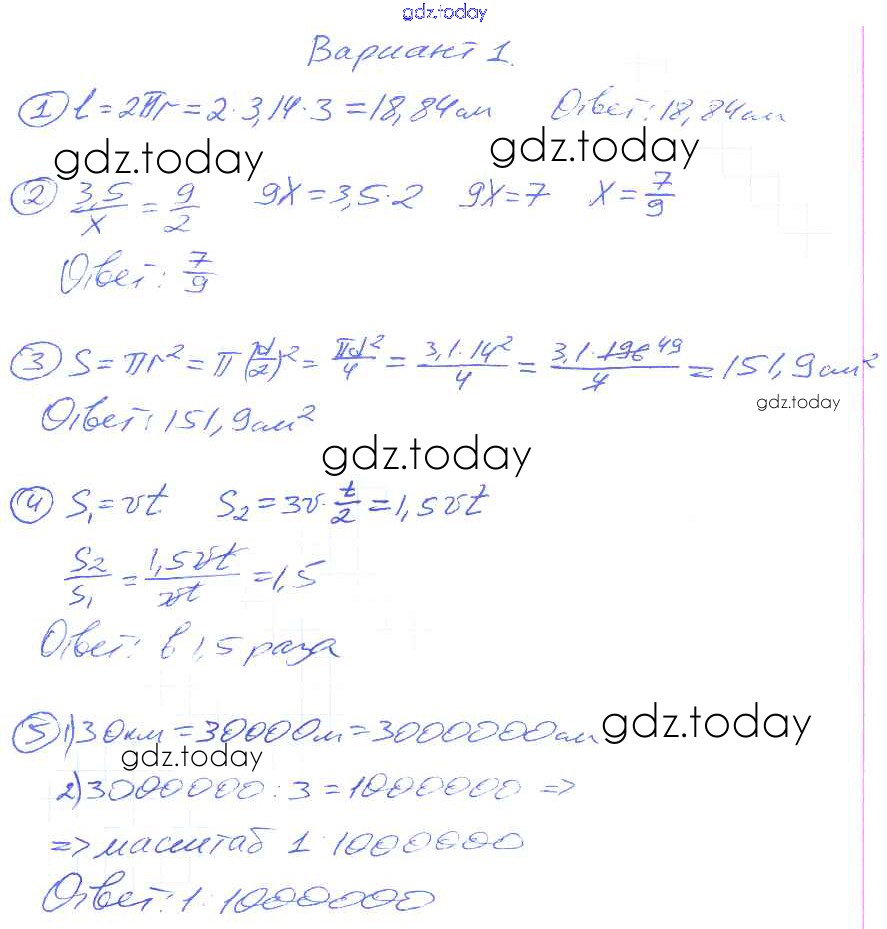 gdz.today
Вариант 1.
① l = 2πr = 2·3,14·3 = 18,84 см Ответ: 18,84 см
gdz.today gdz.today
② 3,5/x = 9/2 9x = 3,5·2 9x = 7 x = 7/9
Ответ: 7/9
③ S = πr² = π(d/2)² = πd²/4 = 3,1·14²/4 = 3,1·196 49/4 = 151,9 см²
gdz.today
Ответ: 151,9 см²
gdz.today
④ S₁ = vt S₂ = 3v·t/2 = 1,5vt
S₂/S₁ = 1,5vt/vt = 1,5
Ответ: в 1,5 раза
⑤ 1) 30 км = 30000 м = 3000000 см
gdz.today
gdz.today
2) 3000000 : 3 = 1000000 =>
=> масштаб 1:1000000
Ответ: 1:1000000